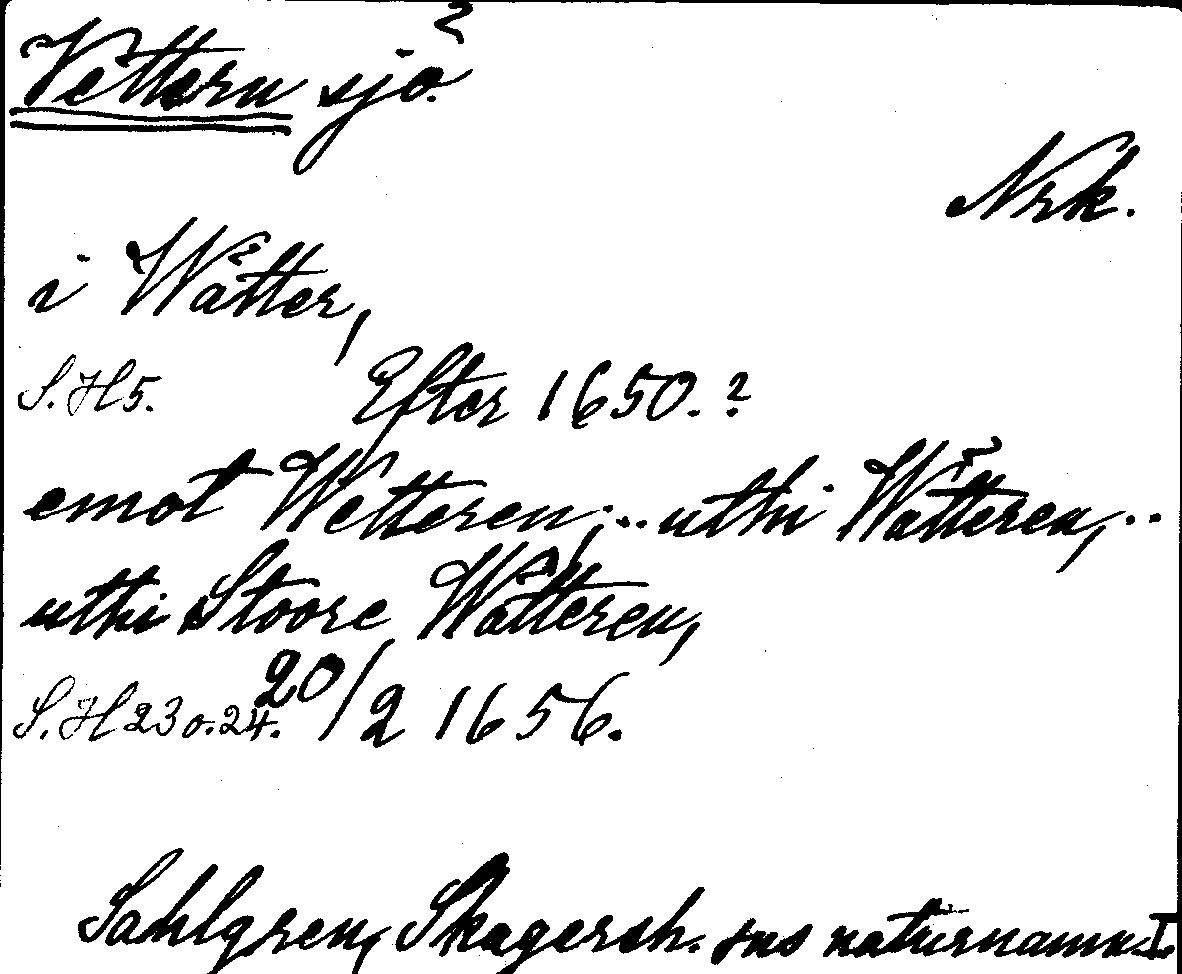 Vettern sjö
Nrk.
i Wätter,
S. H 5. Efter 1650.?
emot Wetteren; .. uthi Wätteren, ..
uthi Stoore Wätteren,
S. H 23 o. 24. 20/2 1656.
Sahlgren, Skagersh. sns naturnamn I.